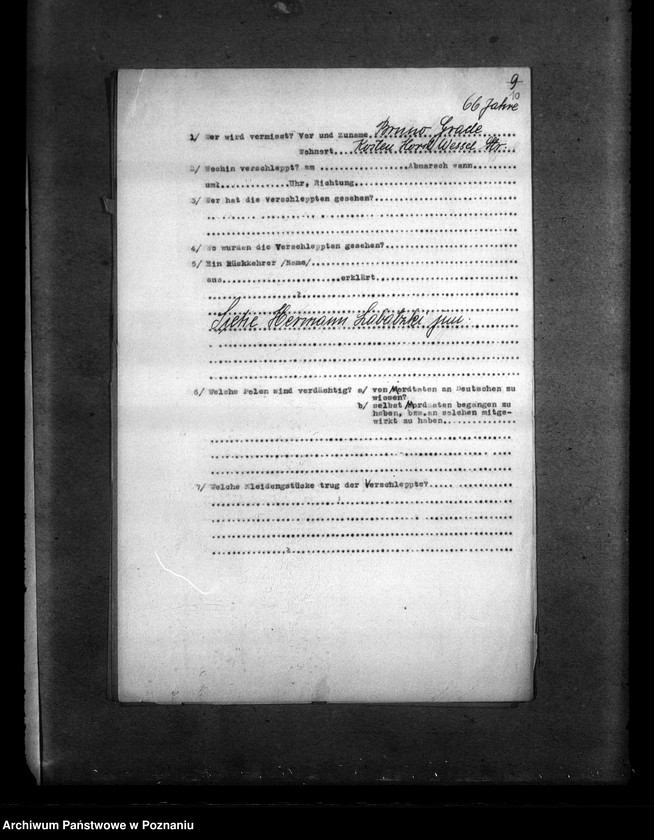 9
10
66 Jahre
1/ Wer wird vermisst? Vor und Zuname. Bruno Grade
Wohnort. Kosten Horst Wessel Str.
2/ Wochin verschleppt? am ................Abmarsch wann........
um..............Uhr, Richtung...............................
3/ Wer hat die Verschleppten gesehen?...........................
4/ Wo wurden die Verschleppten gesehen?.........................
5/ Ein Rückkehrer /Name/........................................
aus.......................erklärt...........................
Siehe Hermann jun.
6/ Welche Polen sind verdächtig? a/ von Mordtaten an Deutschen zu
wissen?
b/ selbst Mordtaten begangen zu
haben, bzw.an solchen mitge-
wirkt zu haben..............
7/ Welche Kleidungstücke trug der Verschleppte?.................
Archiwum Państwowe w Poznaniu